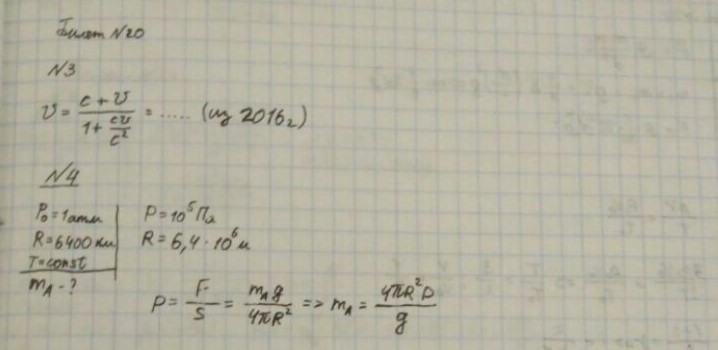 Билет N20
N3
v = (c + v) / (1 + cv/c²) = ..... (из 2016г)
N4
P₀ = 1 атм
R = 6400 км
T = const
m_A - ?
P = 10⁵ Па
R = 6,4 · 10⁶ м
P = F/S = m_A g / 4πR² => m_A = 4πR²P / g